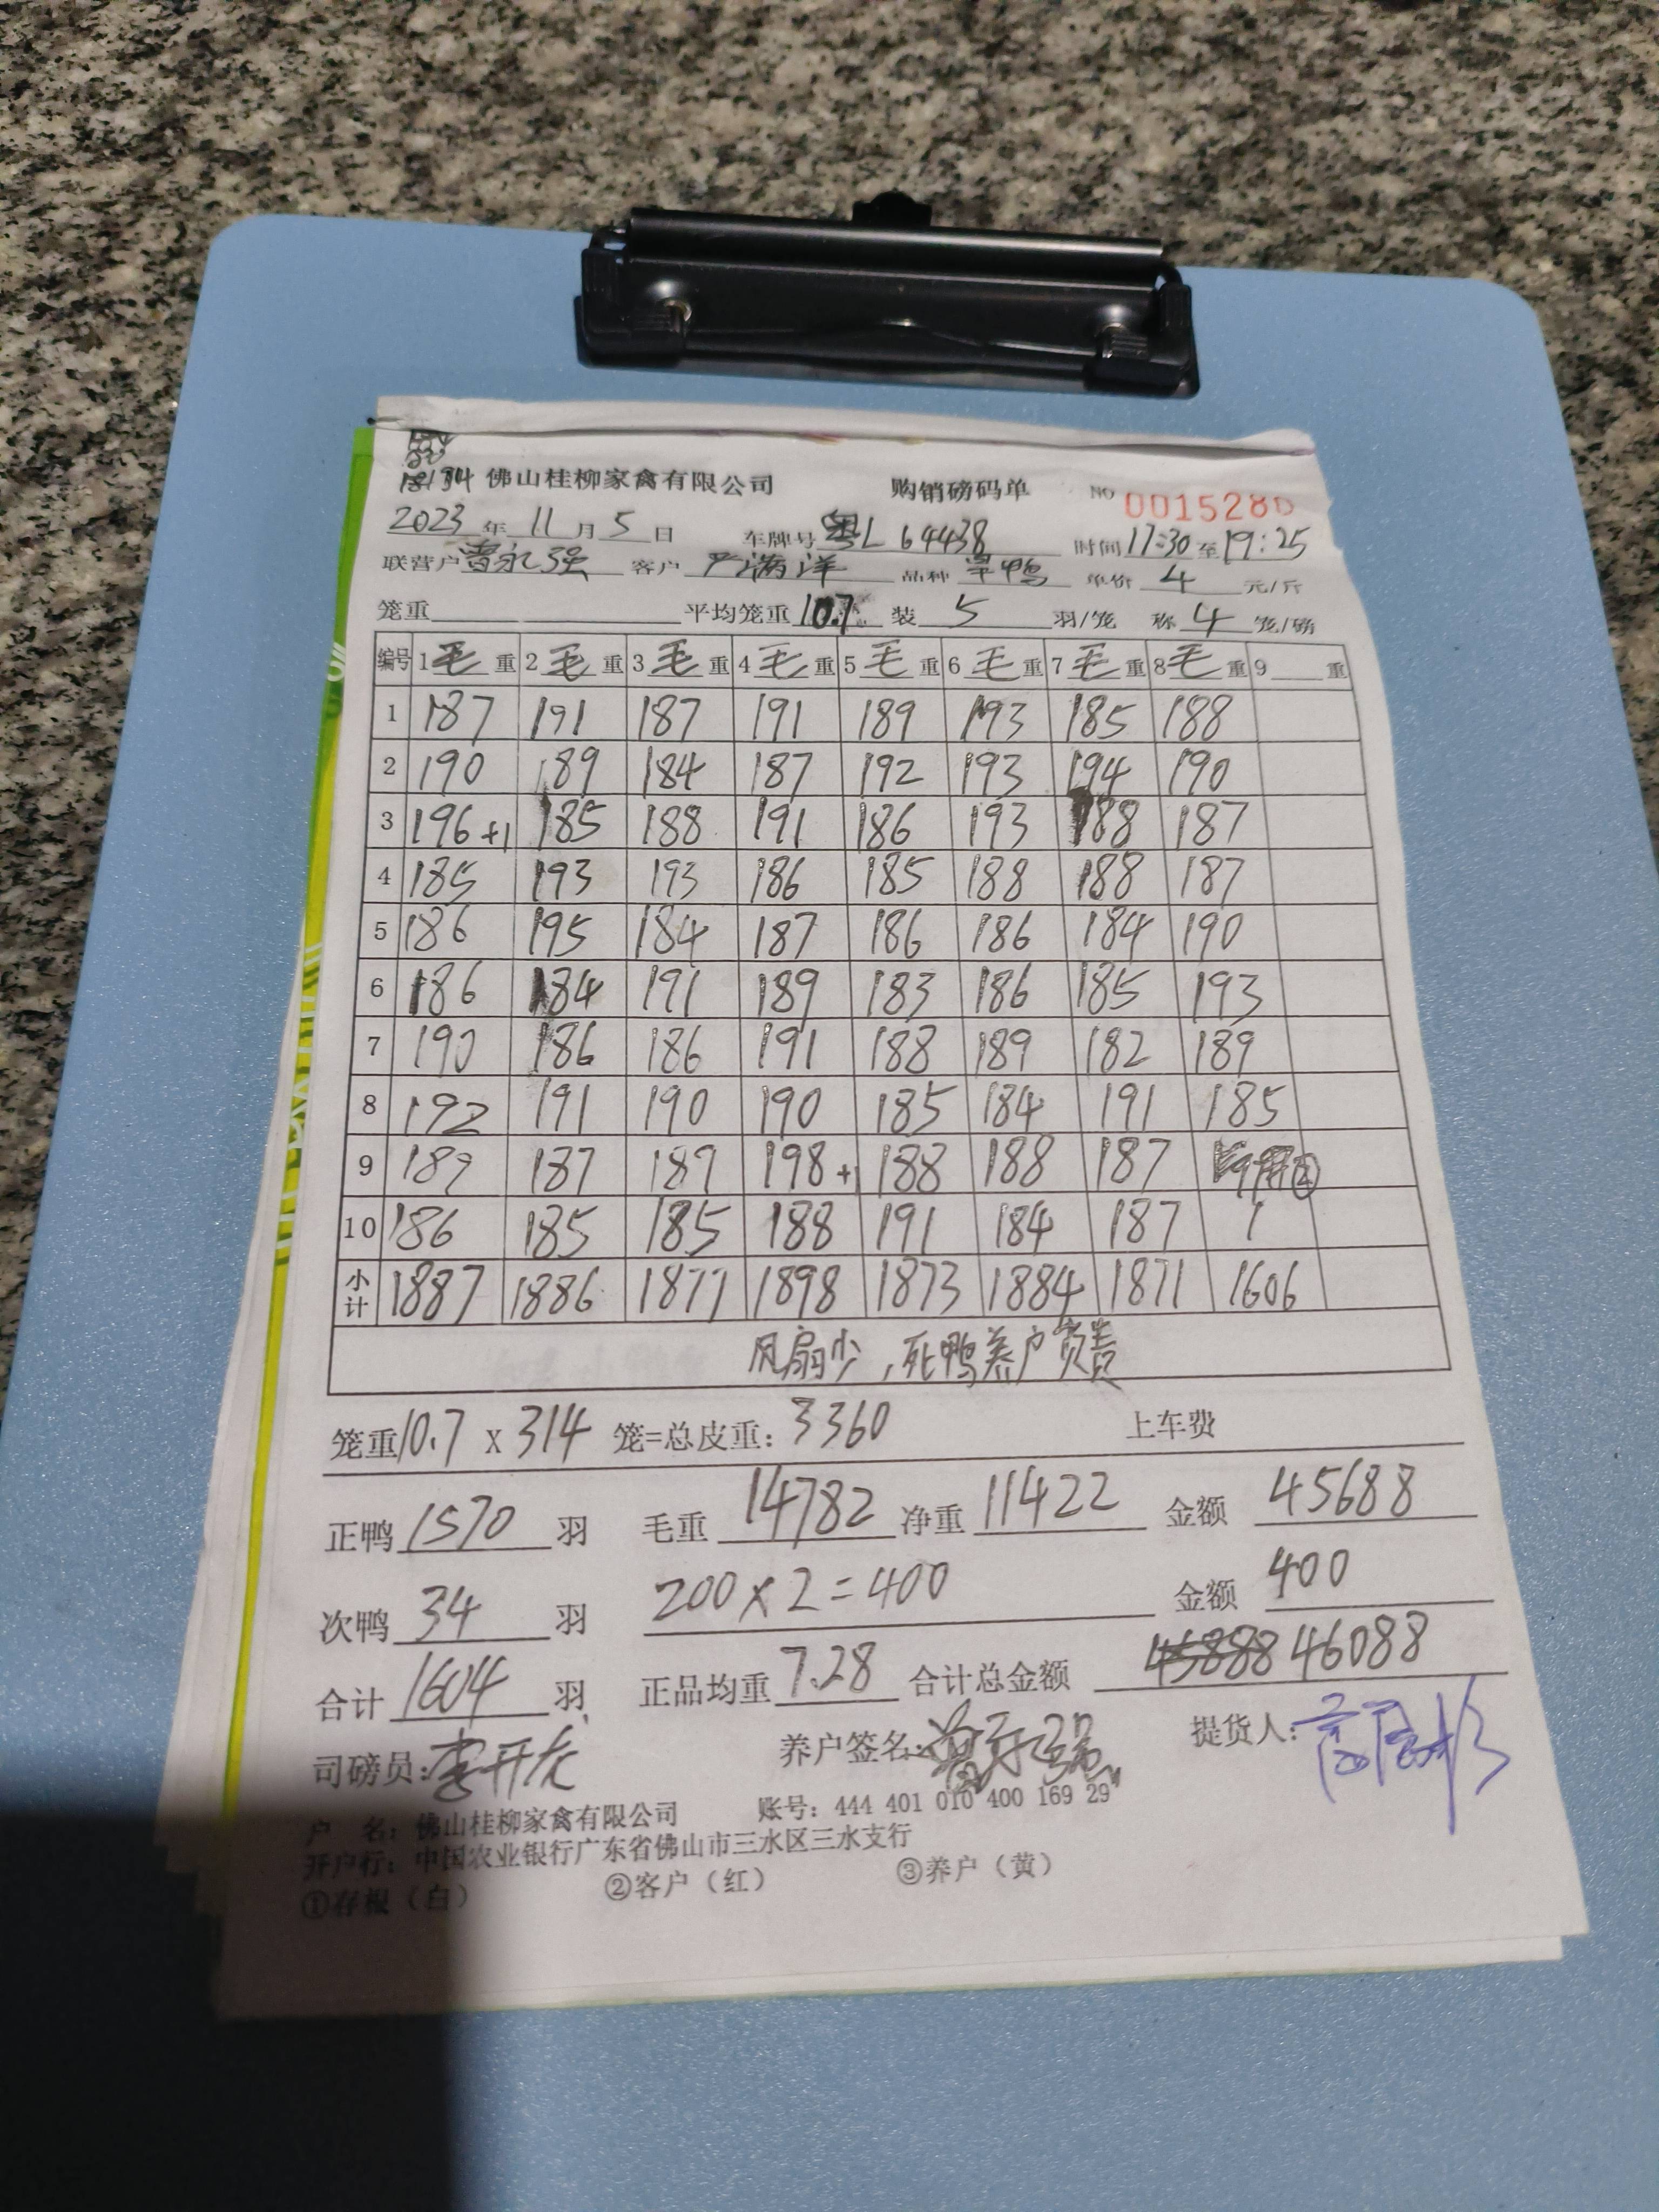 18134 佛山桂柳家禽有限公司 购销磅码单 NO 0015286
2023 年 11 月 5 日 车牌号 粤L 64438 时间 17:30 至 19:25
联营户 曹永强 客户 严满洋 品种 旱鸭 单价 4 元/斤
笼重 平均笼重 10.7 装 5 羽/笼 称 4 笼/磅
编号 1 毛 重 2 毛 重 3 毛 重 4 毛 重 5 毛 重 6 毛 重 7 毛 重 8 毛 重 9 重
1 187 191 187 191 189 193 185 188
2 190 189 184 187 192 193 194 190
3 196+1 185 188 191 186 193 188 187
4 185 193 193 186 185 188 188 187
5 186 195 184 187 186 186 184 190
6 186 184 191 189 183 186 185 193
7 190 186 186 191 188 189 182 189
8 192 191 190 190 185 184 191 185
9 189 187 189 198+1 188 188 187 ②
10 186 185 185 188 191 184 187 1
小计 1887 1886 1877 1898 1873 1884 1871 1606
风扇少,死鸭养户负责
笼重 10.7 x 314 笼=总皮重: 3360 上车费
正鸭 1570 羽 毛重 14782 净重 11422 金额 45688
次鸭 34 羽 200×2=400 金额 400
合计 1604 羽 正品均重 7.28 合计总金额 45888 46088
司磅员: 养户签名: 曹永强 提货人:
户 名: 佛山桂柳家禽有限公司 账号: 444 401 010 400 169 29
开户行: 中国农业银行广东省佛山市三水区三水支行
①存根（白） ②客户（红） ③养户（黄）